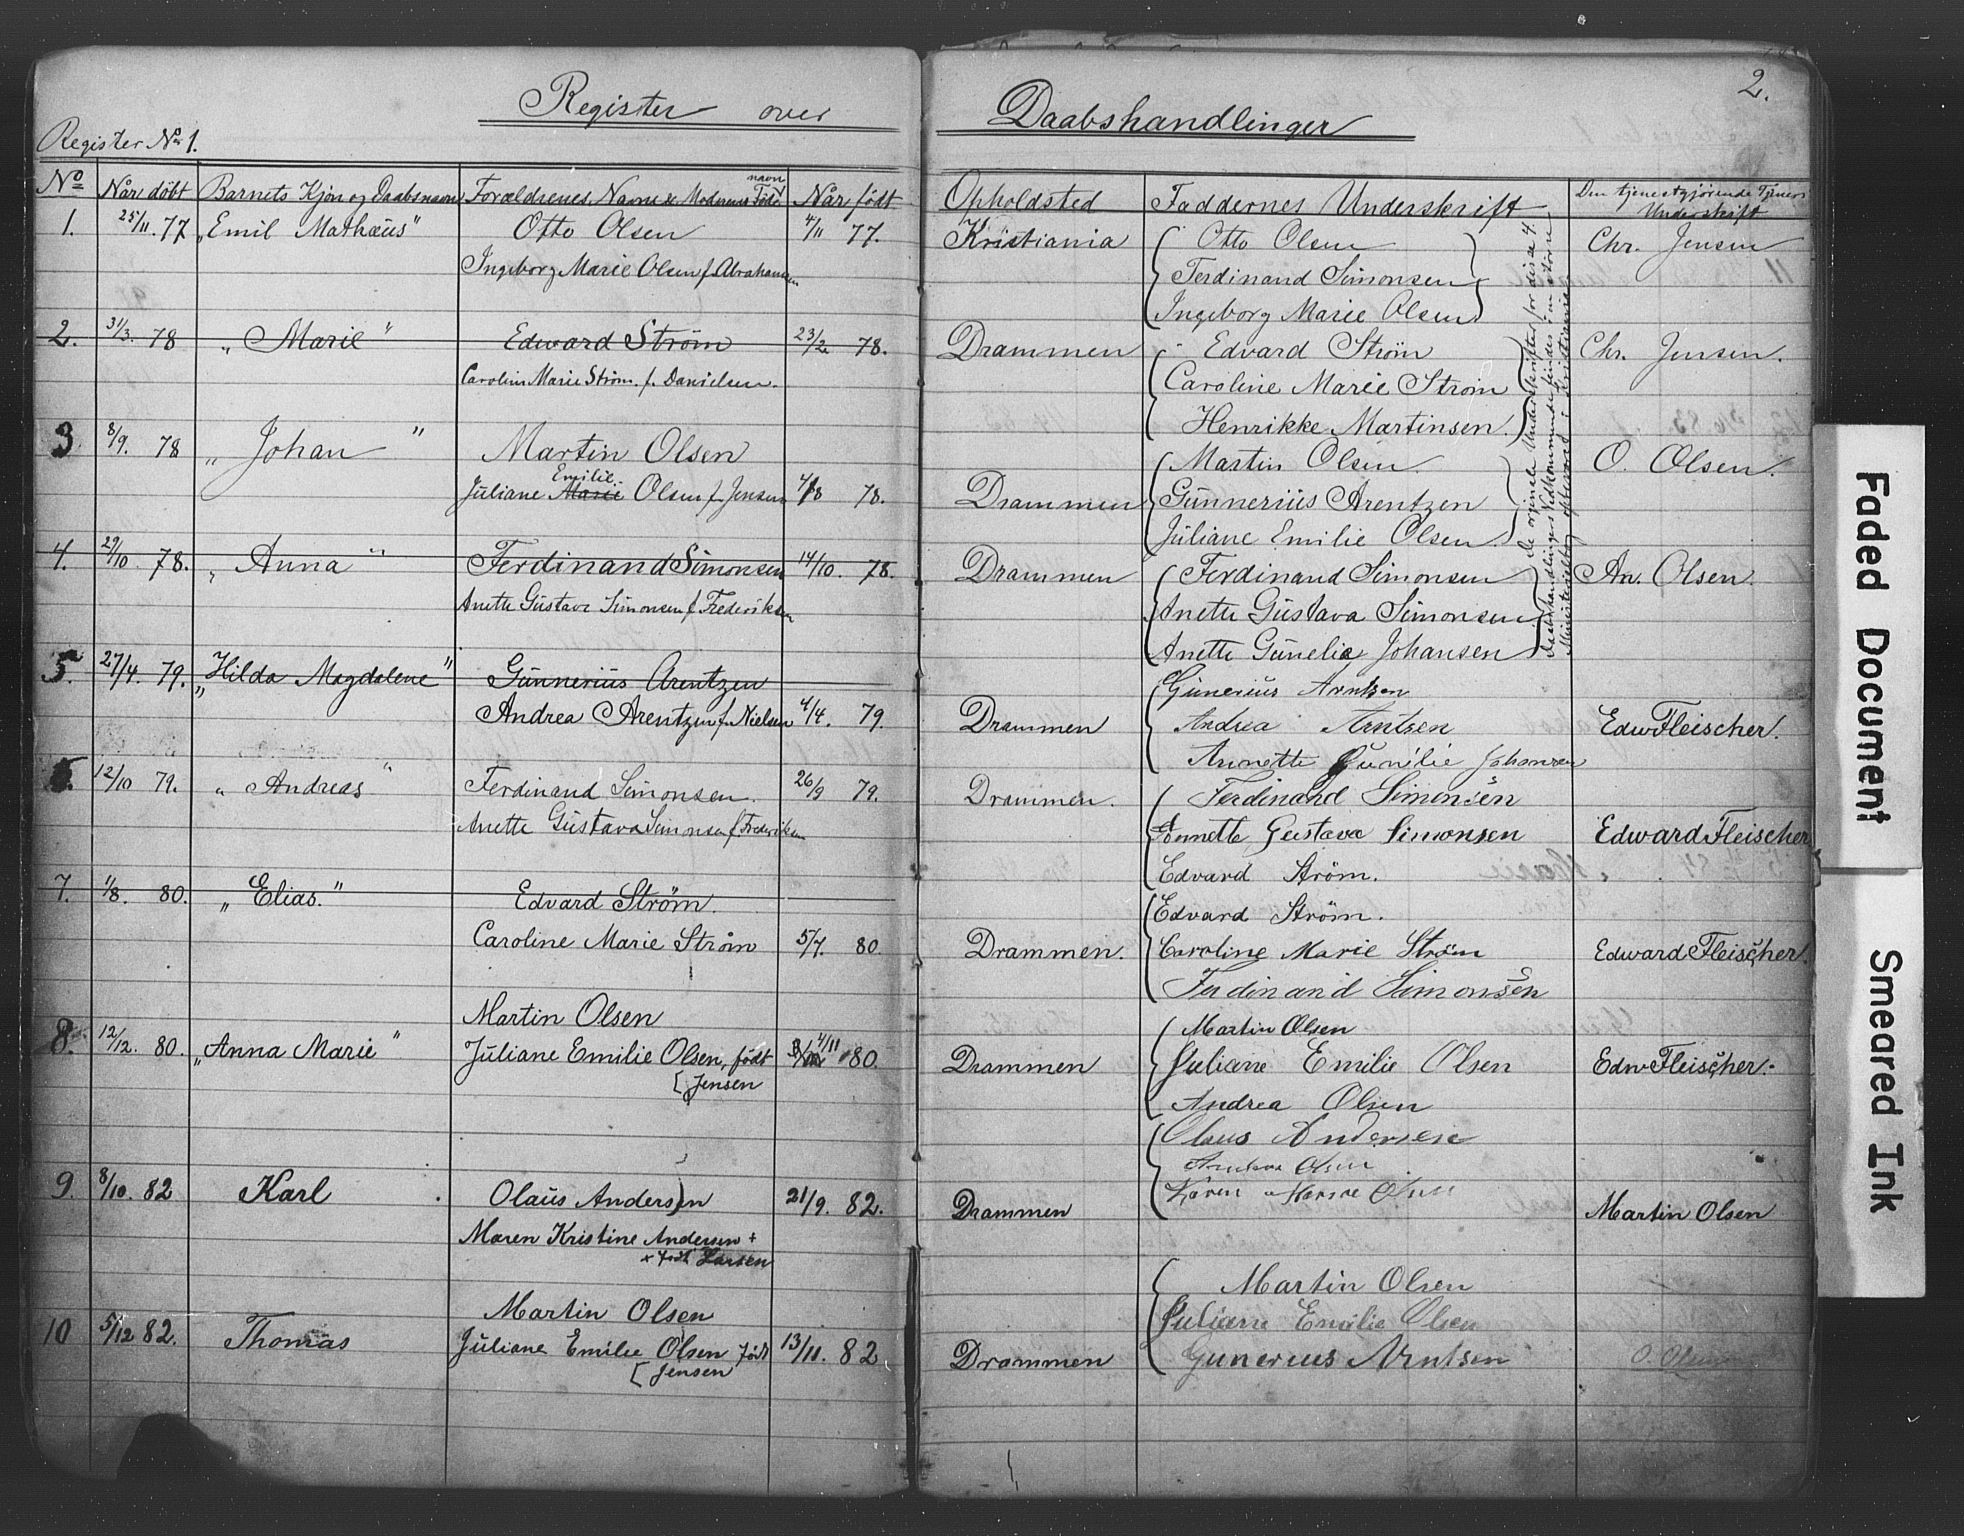 2.
Register over Daabshandlinger
Register No 1.
No Når döbt Barnets Kjøn og Daabsnavn Forældrenes Navne & Moderens Föde navn Når født Opholdsted Faddernes Underskrift Den tjenestgjørende Tjeners Underskrift
1. 25/11. 77 „Emil Mathæus" Otto Olsen 4/11 77. Kristiania Otto Olsen Chr. Jensen
Ingeborg Marie Olsen f. Abrahamsen Ferdinand Simonsen
Ingeborg Marie Olsen
2. 31/3. 78 „Marie" Edward Strøm 23/2 78. Drammen Edvard Strøm Chr. Jensen.
Caroline Marie Strøm. f. Danielsen. Caroline Marie Strøm
Henrikke Martinsen.
3. 8/9. 78 „Johan" Martin Olsen Martin Olsen. O. Olsen.
Juliane Marie Emilie Olsen f. Jensen 4/8 78. Drammen Gunnerius Arentzen
Juliane Emilie Olsen.
4. 29/10. 78. „Anna" Ferdinand Simonsen 14/10. 78. Drammen Ferdinand Simonsen An. Olsen.
Anette Gustava Simonsen f. Frederiksen Anette Gustava Simonsen
Anette Gunelia Johansen
De orginale Underskrifter for disse 4.
Daabshandlinger Vedkommende findes i en større
Ministerialbog opbevaret i Kristiania
5. 27/4. 79. „Hilda Magdalene" Gunnerius Arentzen Gunerius Arntzen
Andrea Arentzen f. Nielsen 4/4. 79. Drammen Andrea Arntzen Edw Fleischer.
Annette Gunilie Johansen
6. 12/10 79. „Andreas" Ferdinand Simonsen. 26/9 79. Drammen. Ferdinand Simonsen
Anette Gustava Simonsen f. Frederiksen Annette Gustava Simonsen Edward Fleischer
Edvard Strøm.
7. 1/8. 80. „Elias." Edvard Strøm. Edvard Strøm.
Caroline Marie Strøm 5/7. 80. Drammen. Caroline Marie Strøm Edward Fleischer.
Ferdinand Simonsen
8. 12/12. 80. „Anna Marie" Martin Olsen Martin Olsen
Juliane Emilie Olsen, født 4/11 80. Drammen Juliane Emilie Olsen Edw Fleischer.
[Jensen Andrea Olsen
Olaus Andersen
Olsen
9. 8/10. 82 Karl Olaus Andersen 21/9. 82. Drammen Karen Olsen Martin Olsen
Maren Kristine Andersen +
+ født Larsen
Martin Olsen Martin Olsen
10 5/12 82. Thomas Juliane Emilie Olsen født 13/11. 82 Drammen Juliane Emilie Olsen
[Jensen Gunerius Arntsen O. Olsen
Faded Document
Smeared Ink